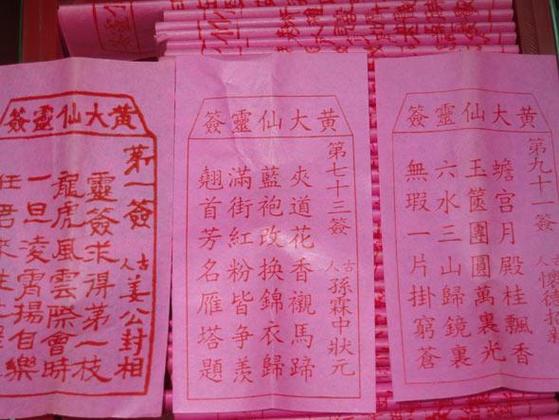 黃大仙靈簽
第一簽
古人 姜公封相
靈簽求得第一枝
龍虎風雲際會時
一旦凌霄揚自樂
任君來往
黃大仙靈簽
第七十三簽
古人 孫霖中狀元
夾道花香襯馬蹄
藍袍改換錦衣歸
滿街紅粉皆争羨
翹首芳名雁塔題
黃大仙靈簽
第九十一簽
古人 懷德招
蟾宮月殿桂飄香
玉篋團圓萬裏光
六水三山歸鏡裏
無瑕一片掛窮蒼